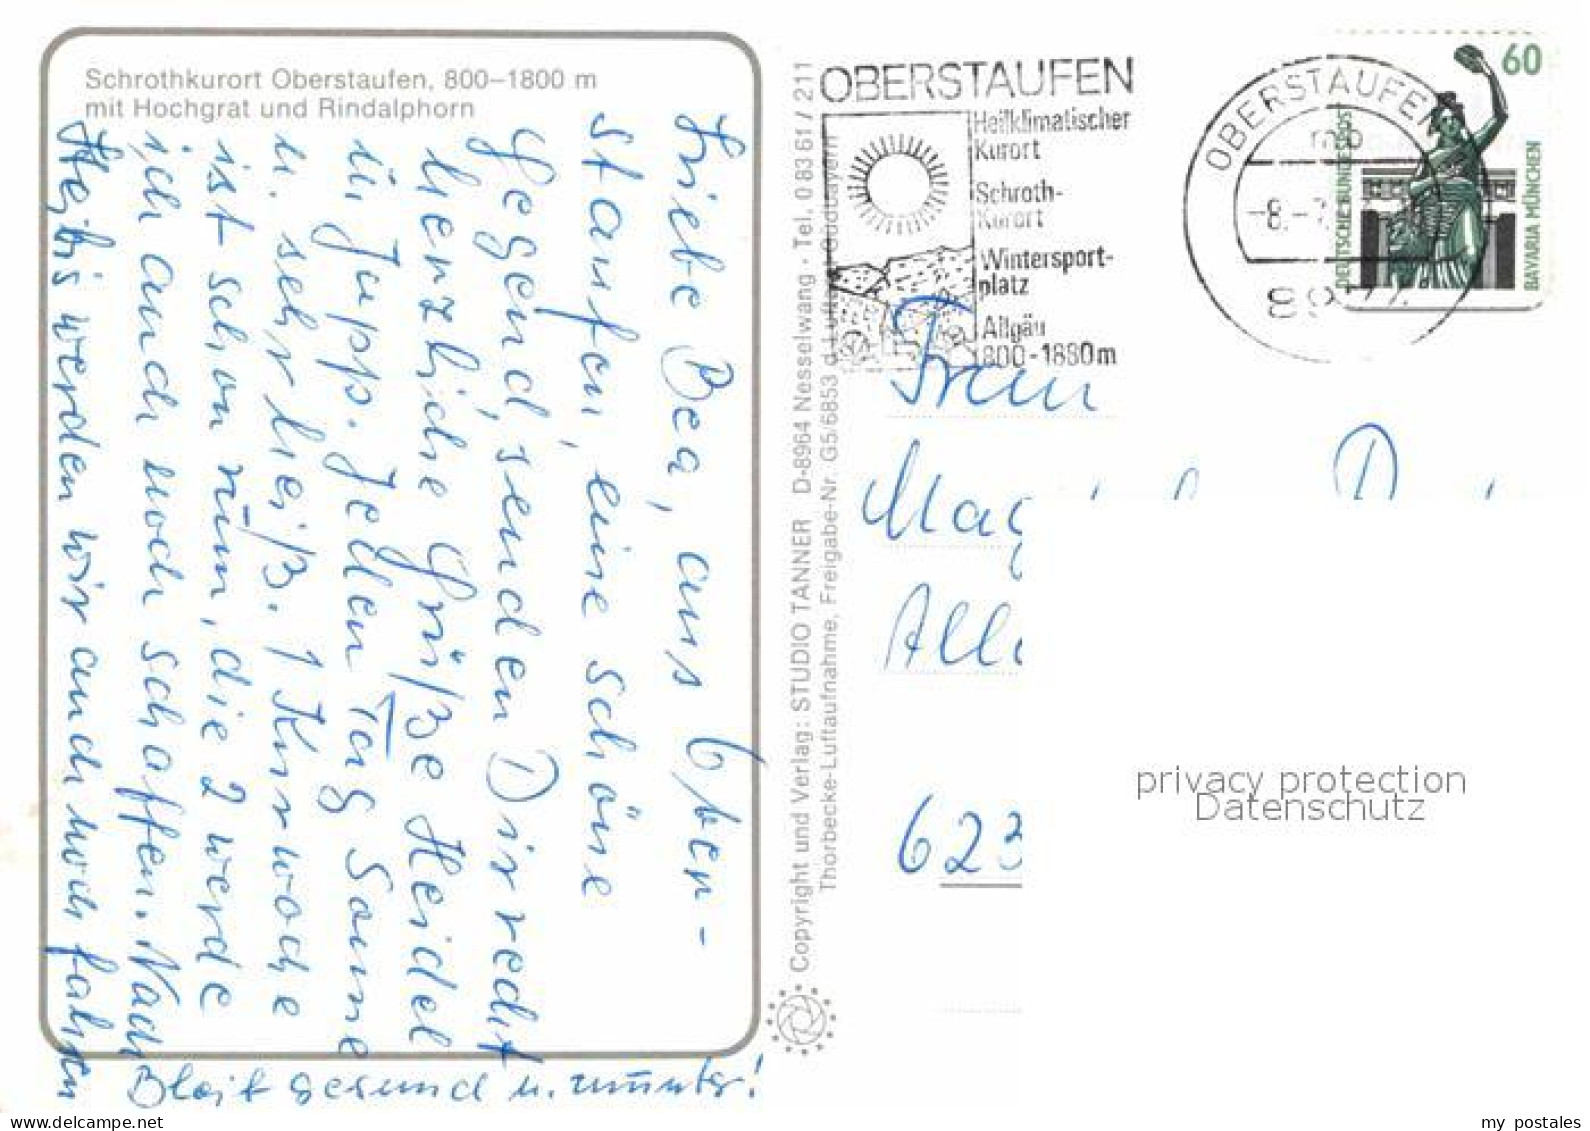 Schrothkurort Oberstaufen, 800–1800 m
mit Hochgrat und Rindalphorn
Liebe Bea, aus Ober-
staufen, eine schöne
Gegend, senden Dir recht
herzliche Grüße Heidel
u. Jupp. Jeden Tag Sonne
u. sehr heiß. 1 Kurwoche
ist schon rum, die 2 werde
ich auch noch schaffen. Nach
werden wir auch noch fahren
Bleib gesund u. munter!
Copyright und Verlag: STUDIO TANNER D-8964 Nesselwang · Tel. 0 83 61 / 211
Thorbecke-Luftaufnahme, Freigabe-Nr. G5/6853 d. Luftamt Südbayern
OBERSTAUFEN
Heilklimatischer
Kurort
Schroth-
Kurort
Wintersport-
platz
Allgäu
800-1880m
OBERSTAUFEN
mb
-8.-
60
DEUTSCHE BUNDESPOST
BAVARIA MÜNCHEN
Frau
623
privacy protection
Datenschutz
my postales